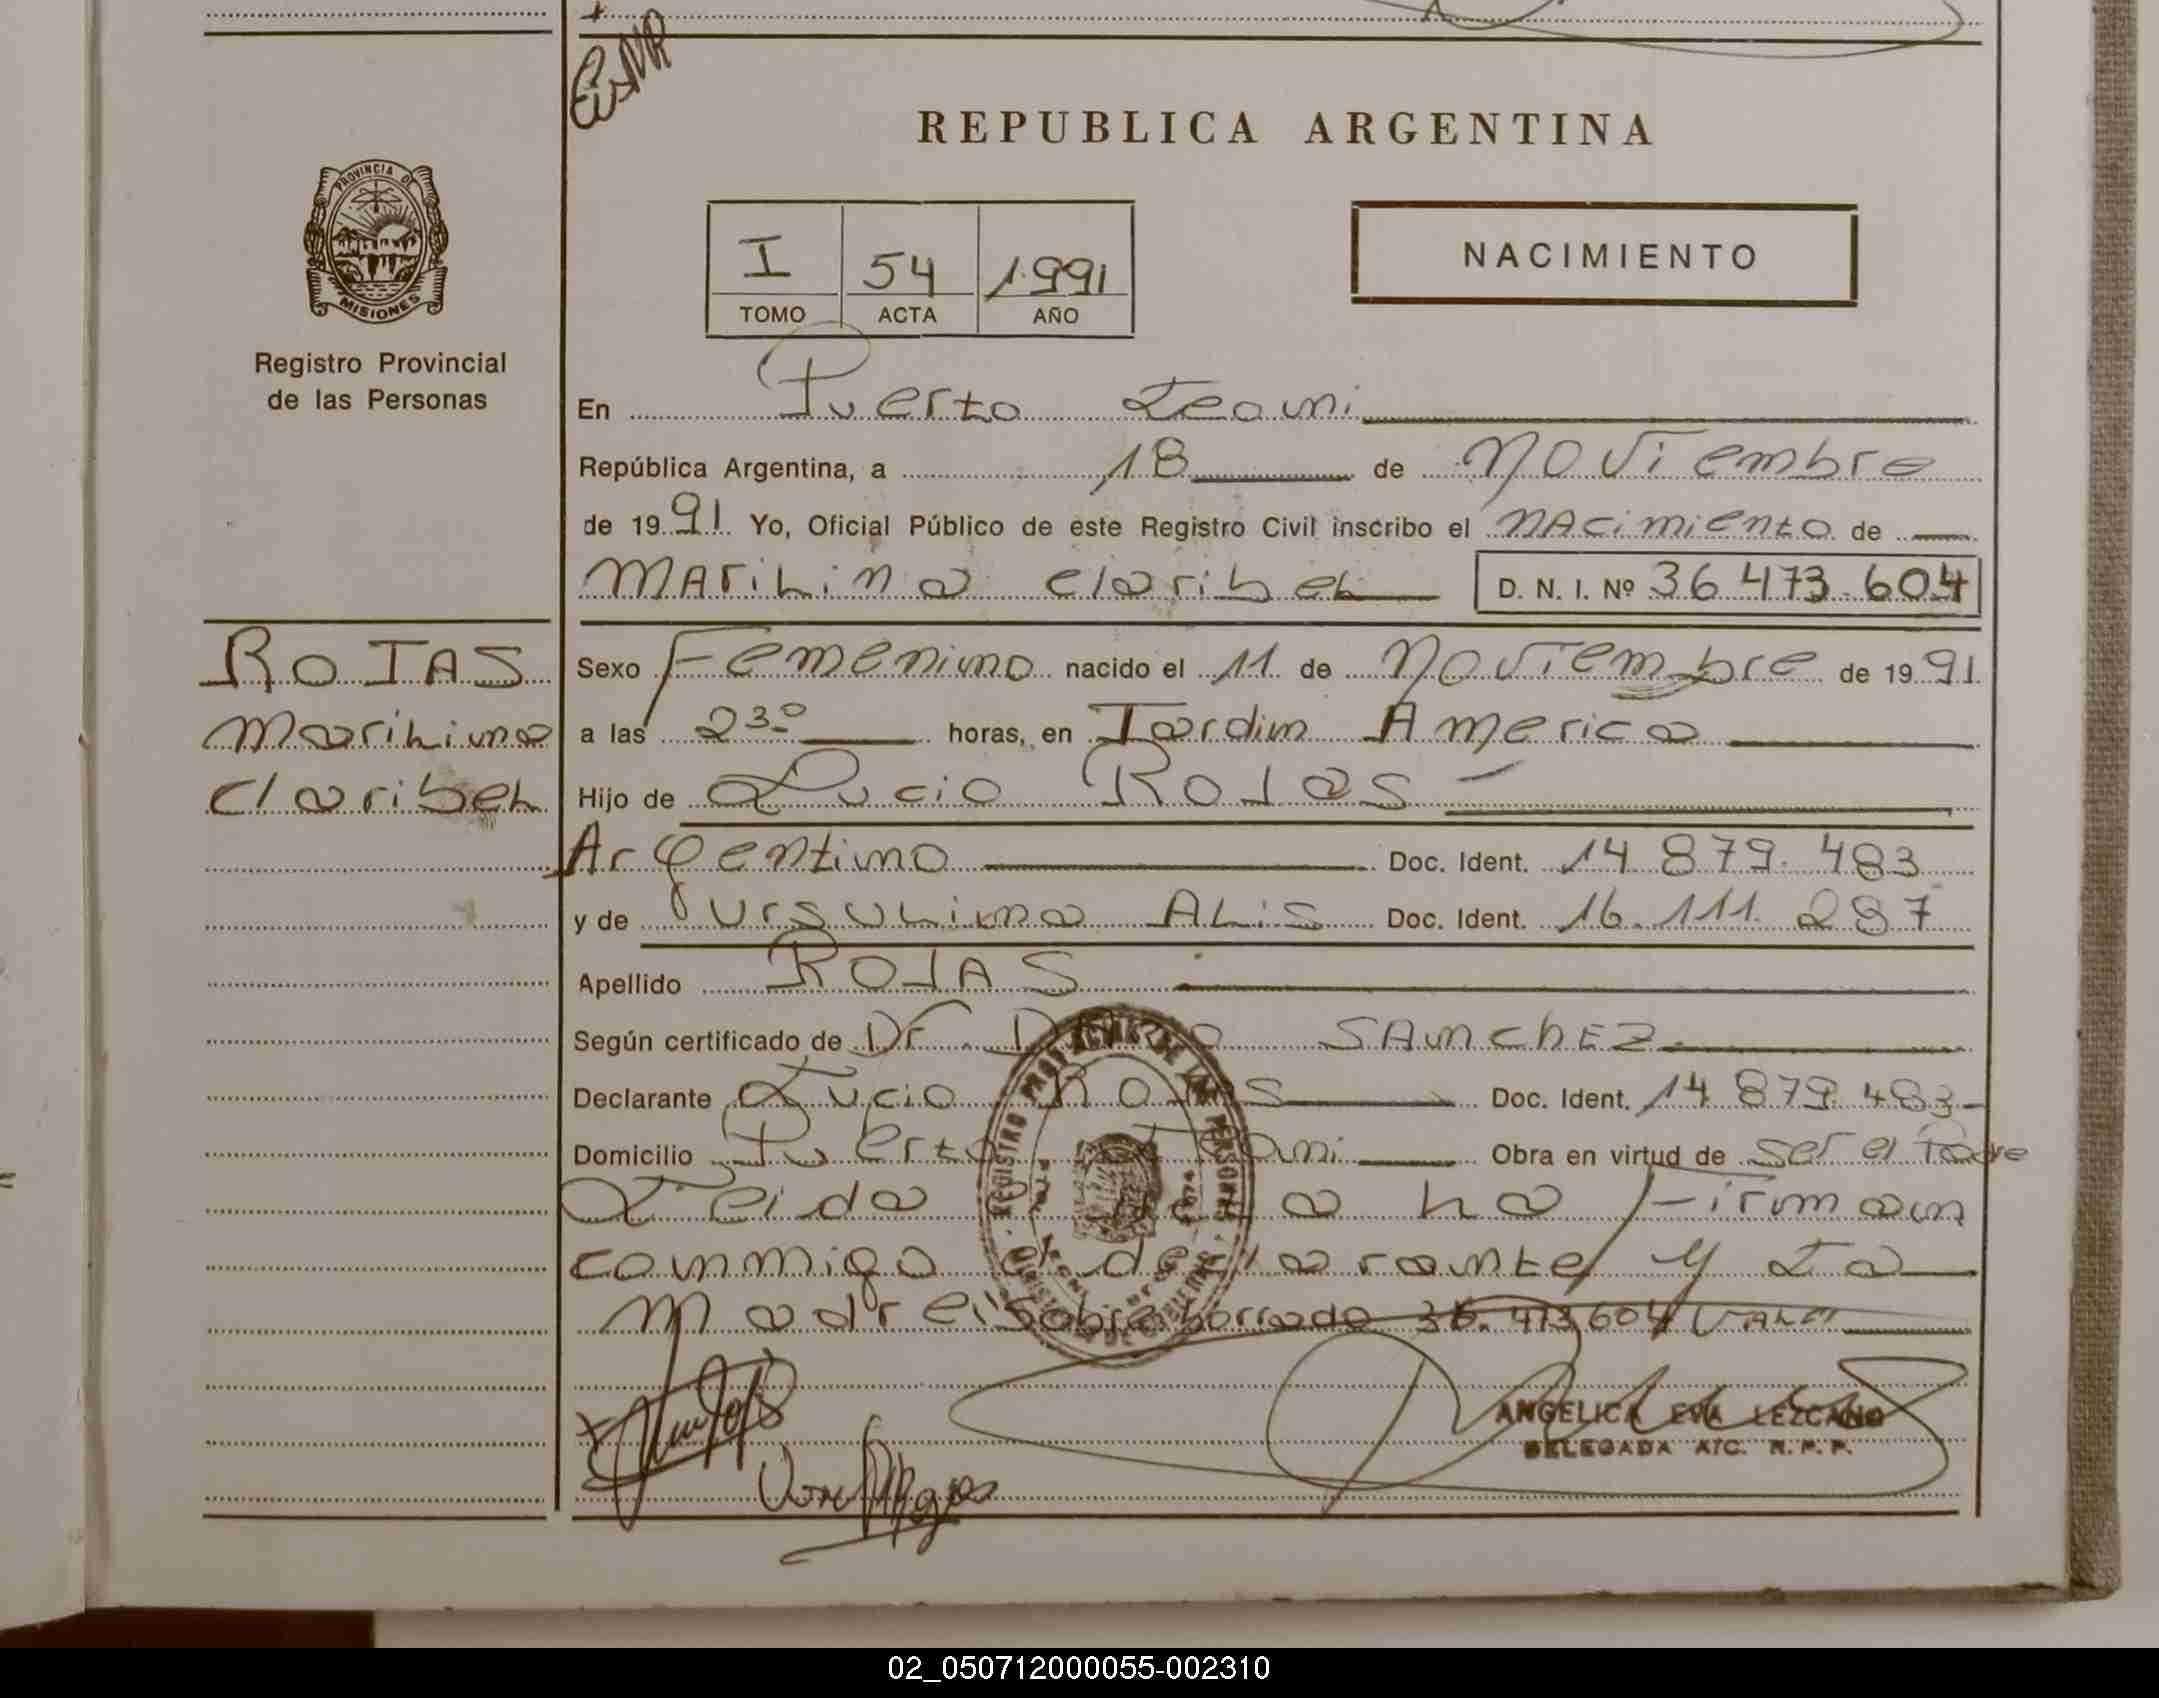 REPUBLICA ARGENTINA
PROVINCIA DE
MISIONES
Registro Provincial
de las Personas
I 54 1991
TOMO ACTA AÑO
NACIMIENTO
En Puerto Leoni
República Argentina, a 18 de Noviembre
de 1991 Yo, Oficial Público de este Registro Civil inscribo el NAcimiento de
MARiLina claribeL D. N. I. Nº 36 473.604
ROJAS
MariLina
ClaribeL
Sexo Femenino nacido el 11 de Noviembre de 1991
a las 23º horas, en Jardin America
Hijo de Lucio ROJas
Argentino Doc. Ident. 14 879.483
y de UrsuLina ALis Doc. Ident. 16.111.287
Apellido ROJAS
Según certificado de Dr. SAnchEZ
Declarante Lucio Rojas Doc. Ident. 14 879.483
Domicilio Puerto Leoni Obra en virtud de ser el Padre
Leida el Acta La Firman
conmigo el declarante y La
Madre: Sobre borrado 36.473604 VALe
ANGELICA EVA LEZCANO
DELEGADA A/C. R. P. P.
02_050712000055-002310